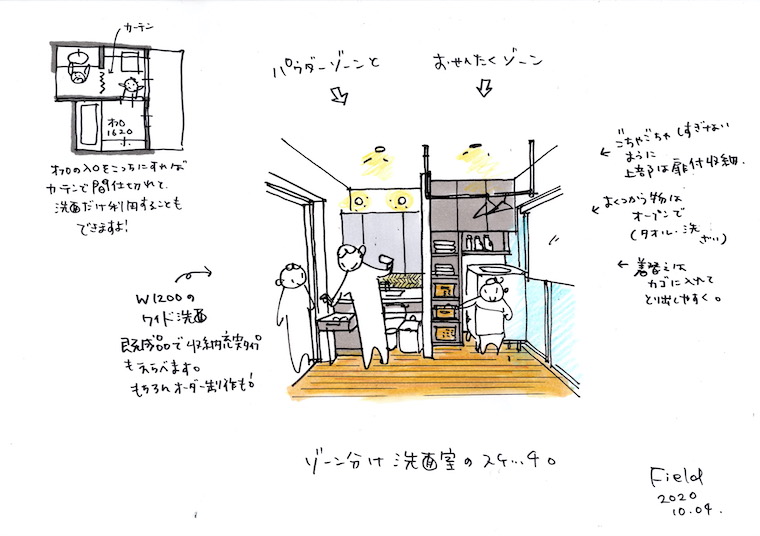 カーテン
オフロ
1620
オフロの入口をこっちにすれば
カーテンで間仕切れて、
洗面だけ利用することも
できますよ!
パウダーゾーンと
おせんたくゾーン
ごちゃごちゃしすぎない
ように
上部は扉付収納.
よくつかう物は
オープンで
(タオル・洗ざい)
着替えは
カゴに入れて
とり出しやすく。
W1200の
ワイド洗面
既成品で収納充実タイプ
もえらべます。
もちろんオーダー製作も!
ゾーン分け洗面室のスケッチ。
Field
2020
10.04.